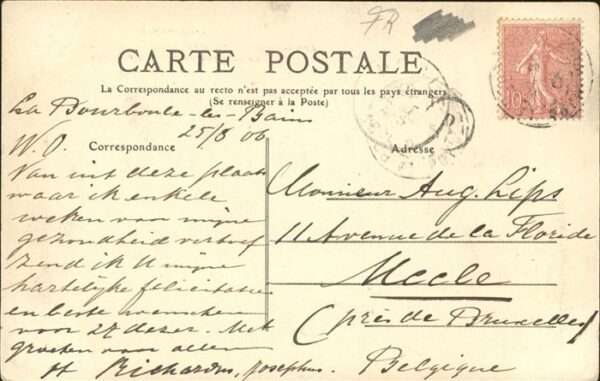 FR
CARTE POSTALE
La Correspondance au recto n'est pas acceptée par tous les pays étrangers
(Se renseigner à la Poste)
La Bourboule-les-Bains
25/8 06
Correspondance
Adresse
W.O.
Van uit deze plaats
waar ik enkele
weken voor mijne
gezondheid vertoef
zend ik U mijne
hartelijke felicitatie
en beste wenschen
voor 27 dezer. Met
groeten voor allen
Richardus, Josephus.
Monsieur Aug. Lips
11 Avenue de la Floride
Uccle
(près de Bruxelles)
Belgique
10